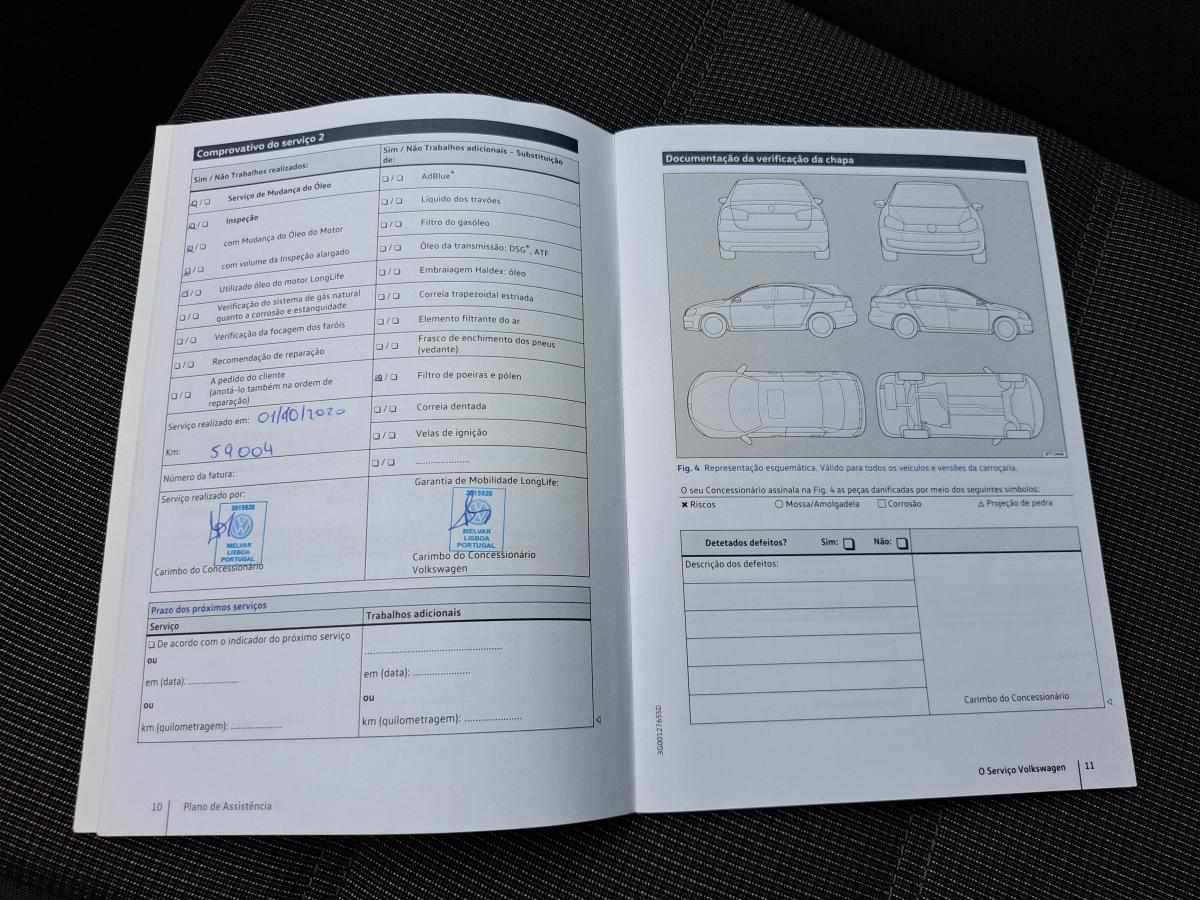 Comprovativo do serviço 2
Sim / Não Trabalhos realizados:
Serviço de Mudança do Óleo
Inspeção
com Mudança do Óleo do Motor
com volume da Inspeção alargado
Utilizado óleo do motor LongLife
Verificação do sistema de gás natural
quanto a corrosão e estanquidade
Verificação da focagem dos faróis
Recomendação de reparação
A pedido do cliente
(anotá-lo também na ordem de
reparação)
Serviço realizado em: 01/10/2020
Km: 59004
Número da fatura:
Serviço realizado por:
MELVAR
LISBOA
PORTUGAL
Carimbo do Concessionário
Sim / Não Trabalhos adicionais – Substituição
de:
AdBlue®
Líquido dos travões
Filtro do gasóleo
Óleo da transmissão: DSG®, ATF
Embraiagem Haldex: óleo
Correia trapezoidal estriada
Elemento filtrante do ar
Frasco de enchimento dos pneus
(vedante)
Filtro de poeiras e pólen
Correia dentada
Velas de ignição
Garantia de Mobilidade LongLife:
MELVAR
LISBOA
PORTUGAL
Carimbo do Concessionário
Volkswagen
Prazo dos próximos serviços
Serviço
De acordo com o indicador do próximo serviço
ou
em (data): ..................
ou
km (quilometragem): ..................
Trabalhos adicionais
em (data): ....................
ou
km (quilometragem): ....................
10 Plano de Assistência
Documentação da verificação da chapa
Fig. 4 Representação esquemática. Válido para todos os veículos e versões da carroçaria.
O seu Concessionário assinala na Fig. 4 as peças danificadas por meio dos seguintes símbolos:
✖ Riscos ○ Mossa/Amolgadela □ Corrosão △ Projeção de pedra
Detetados defeitos? Sim: ❑ Não: ❑
Descrição dos defeitos:
Carimbo do Concessionário
3G0012765SD
O Serviço Volkswagen 11